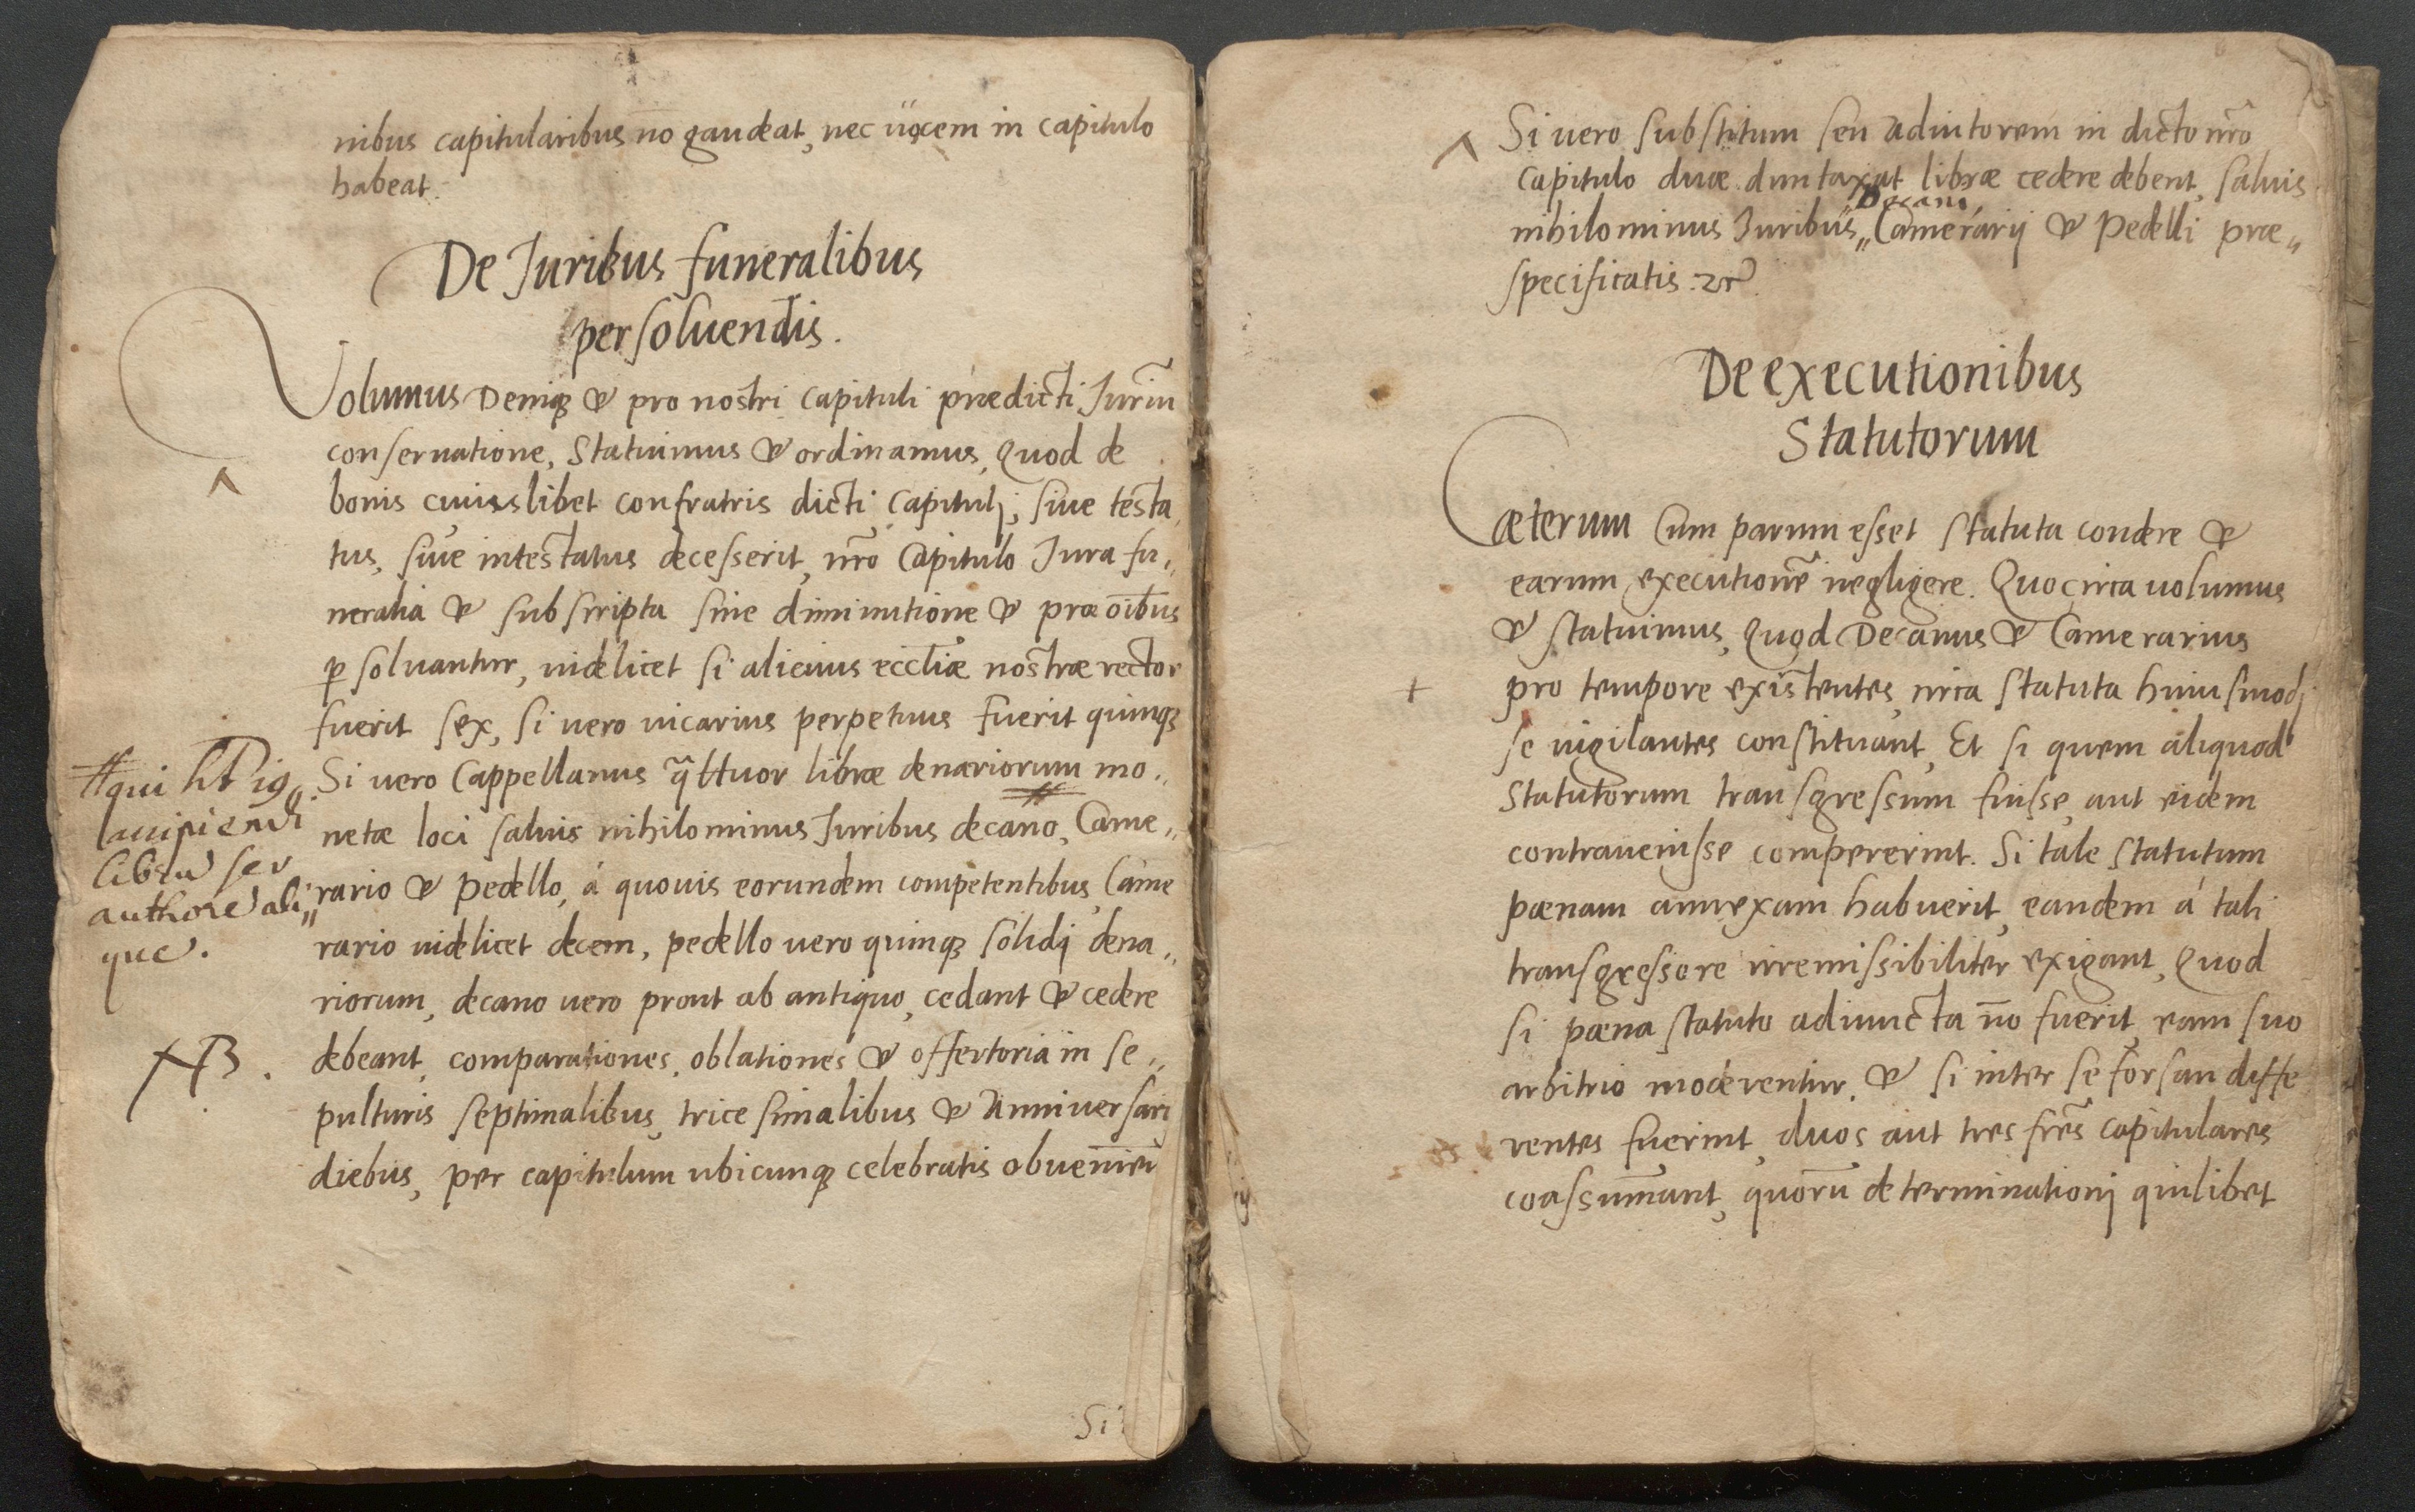 nibus capitularibus nō gaudeat, nec uocem in capitulo
habeat.
De Juribus funeralibus
persoluendis.
Volumus Deniqꝫ & pro nostri capituli prædicti Juriū
conseruatione, Statuimus & ordinamus, Quod de
bonis cuiuslibet confratris dicti capitulj, siue testa
tus, siue intestatus decesserit, nr̄o Capitulo Jura fu„
neralia & subscripta sine diminutione & præ oībus
ꝑsoluantur, uidelicet si alicuius eccl̄iæ nostræ rector
fuerit sex, si uero uicarius perpetuus fuerit quinqꝫ
Si uero Cappellanus q̄ttuor libræ denariorum mo„
netæ loci saluis nihilominus Juribus decano, Came„
rario & pedello, á quouis eorundem competentibus, Came
rario uidelicet decem, pedello uero quinqꝫ solidj dena„
riorum, decano uero prout ab antiquo, cedant & cedere
debeant, comparationes, oblationes & offertoria in se„
pulturis septimalibus, tricesimalibus & Anniuersarij
diebus, per capitulum ubicunqꝫ celebratis obuenien
qui
accipiendi
authore ali„
que.
NB.
Si
Si uero substitum seu adiutorem in dicto nr̄o
capitulo duæ duntaxat libræ cedere debent, saluis
Decani,
nihilominus Juribus„ Camerarij & Pedelli præ„
specificatis. ⁊c̄.
De executionibus
Statutorum
Cæterum Cum parum esset statuta condere &
earum executionē negligere. Quocirca uolumus
& statuimus, Quod Decanus & Camerarius
pro tempore existentes, circa statuta huiusmodj
se uigilantes constituant, Et si quem aliquod
Statutorum transgressum fuisse, aut eidem
contrauenisse compererint. Si tale statutum
pœnam annexam habuerit, eandem á tali
transgressore irremissibiliter exigant, Quod
si pœna statuto adiuncta nō fuerit, eam suo
arbitrio moderentur, & si inter se forsan diffe
rentes fuerint, duos aut tres fr̄es capitulares
coassumant, quorū determinationj quilibet